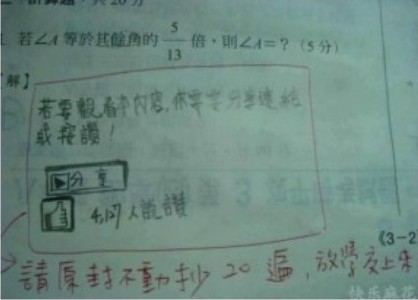 計算題：共20分
1. 若∠A等於其餘角的 5/13 倍，則∠A=？（5分）
解】
若要觀看本內容，你需要分享連結
或按讚！
分享
人說讚
《3-2
請原封不動抄20遍，放學交上來
快乐麻花